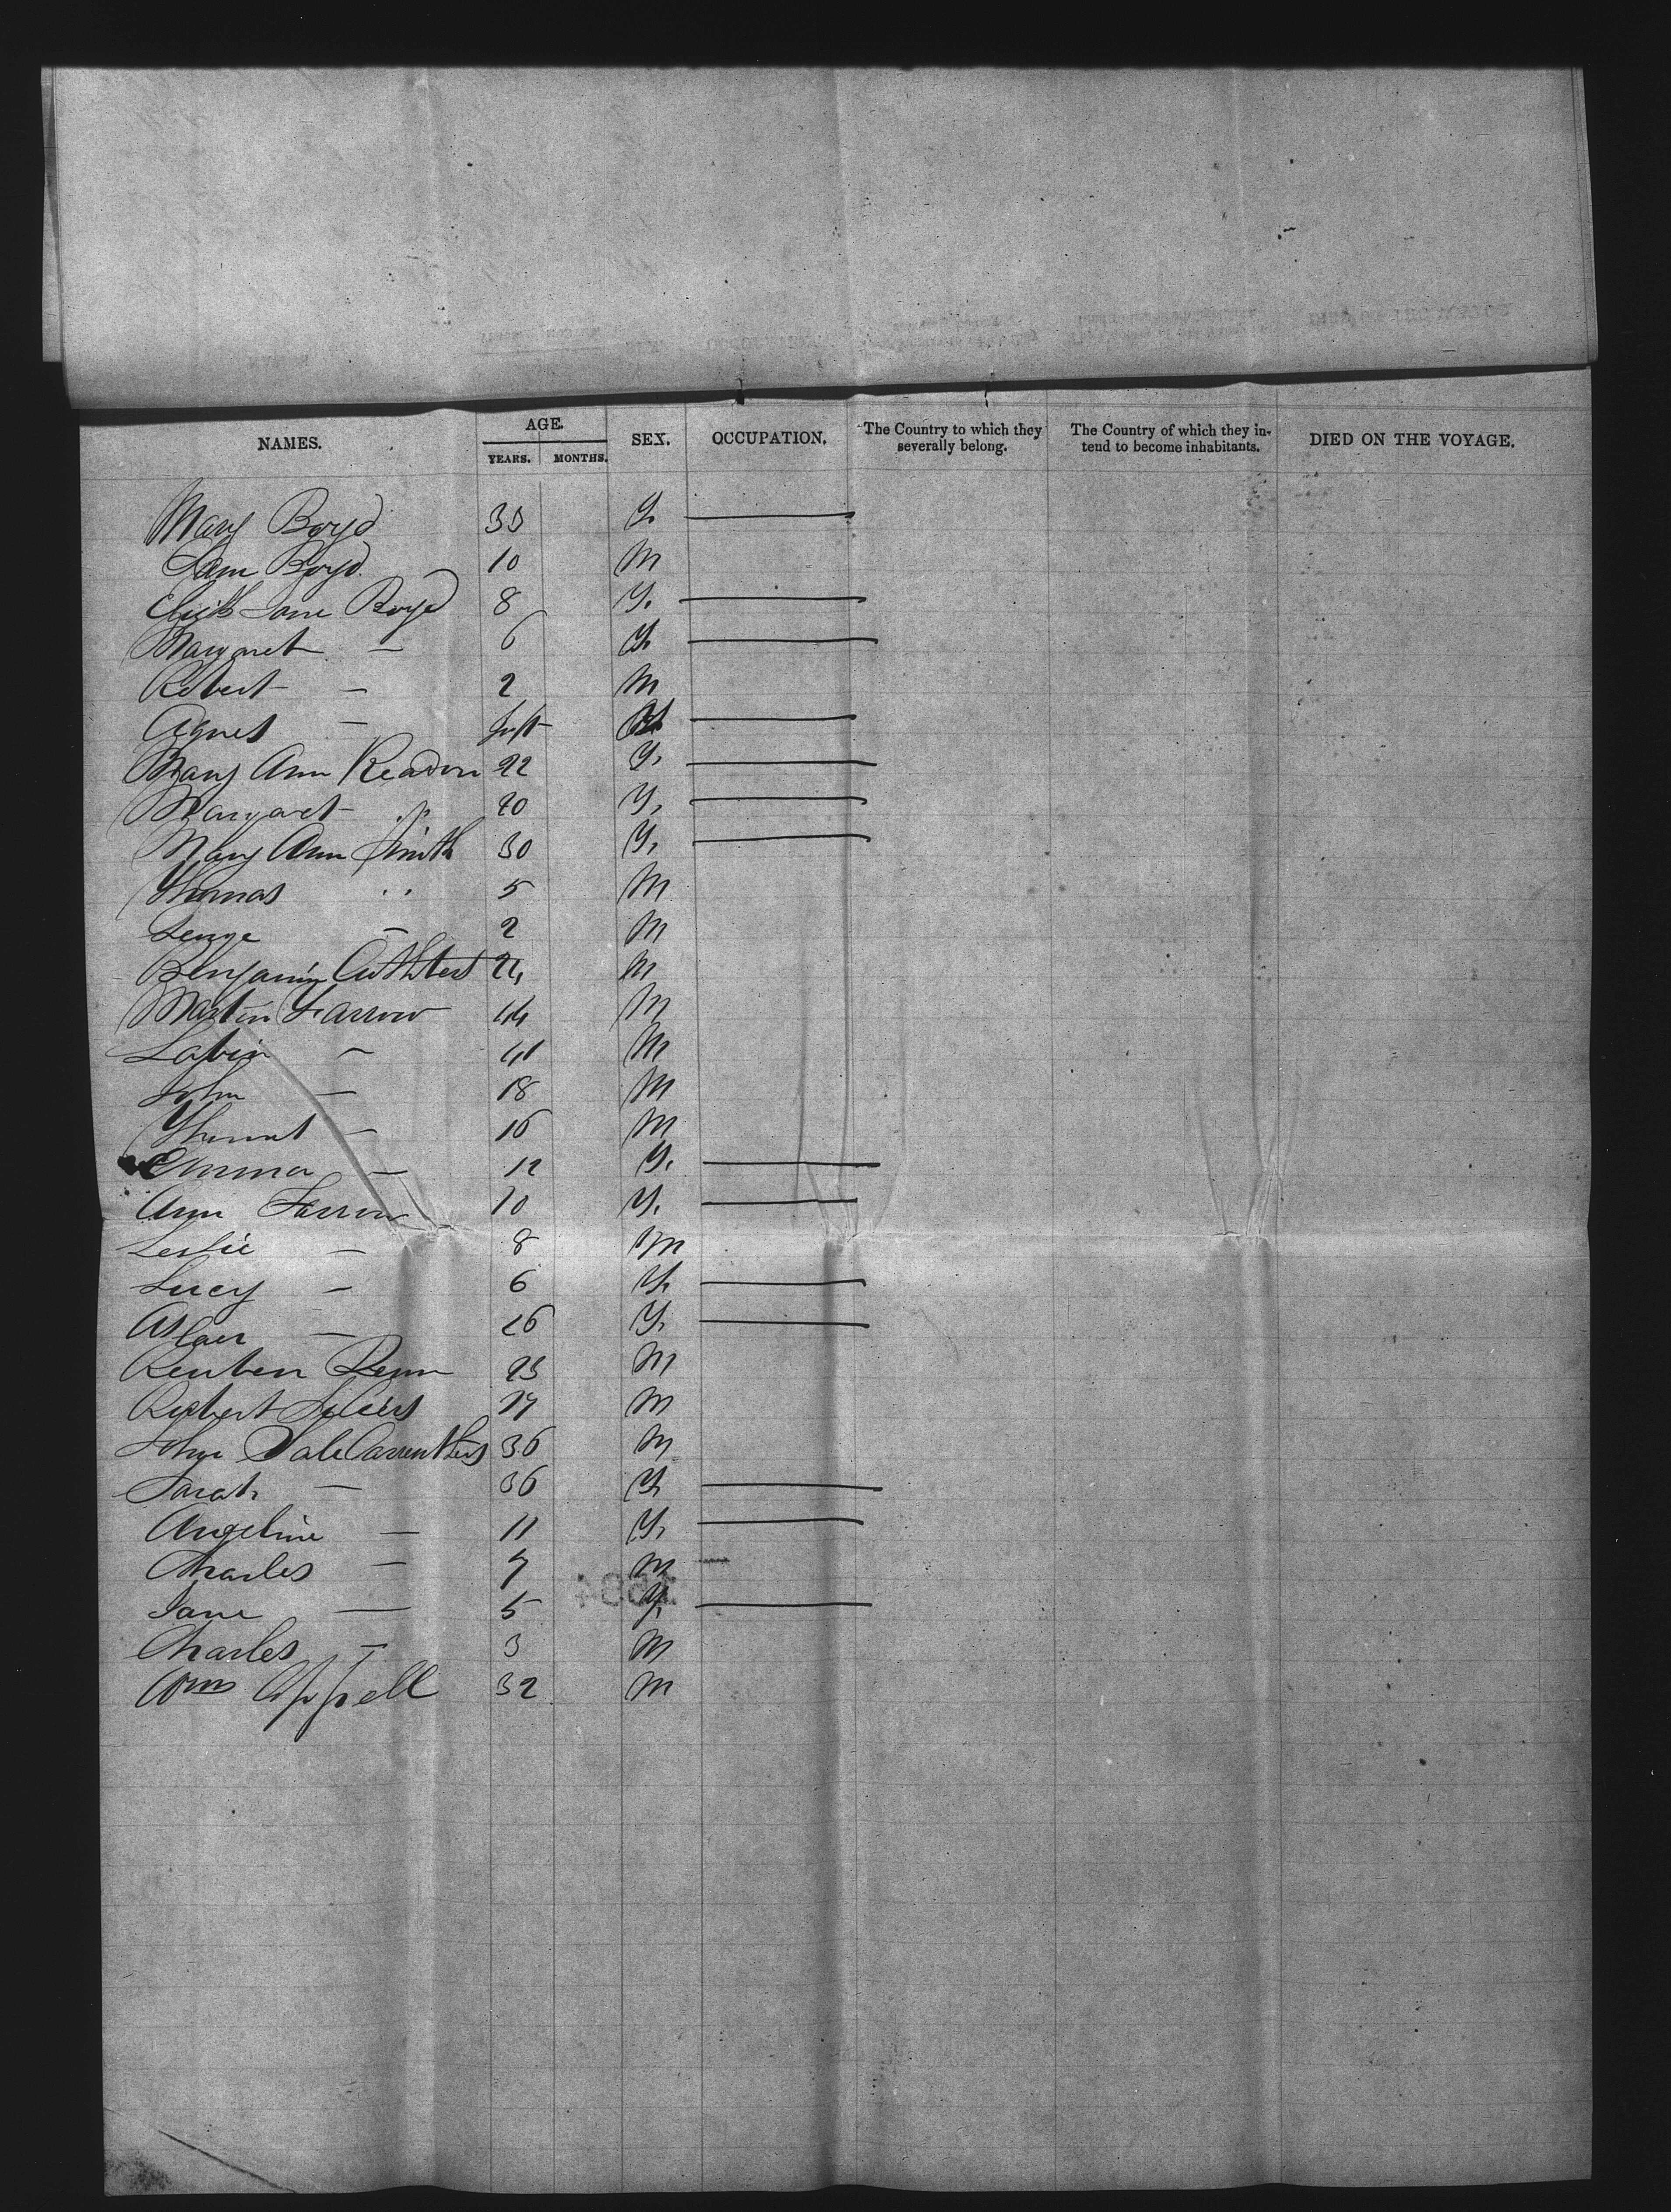 NAMES. AGE. SEX. OCCUPATION. The Country to which they severally belong. The Country of which they intend to become inhabitants. DIED ON THE VOYAGE.
YEARS. MONTHS.
Mary Boyd 35 F
Sam Boyd 10 M
Elizth Jane Boyd 8 F.
Margaret — 6 F
Robert — 2 M
Agnes — Inft F
Mary Ann Readon 22 F.
Margaret " 20 F.
Mary Ann Smith 30 F.
Thomas " 5 M
— 2 M
Benjamin Cuthbert 24 M
Martin Farrow 44 M
— 41 M
John — 18 M
— 16 M
Emma — 12 F.
Ann Farrow 10 F.
Leslie — 8 M
Lucy — 6 F
— 26 F
Reuben Penn 23 M
Robert 17 M
John Dale Carruthers 36 M
Sarah — 36 F
Angeline — 11 F.
Charles — 7 M
Jane — 5 F
Charles — 3 M
Wm Appell 32 M